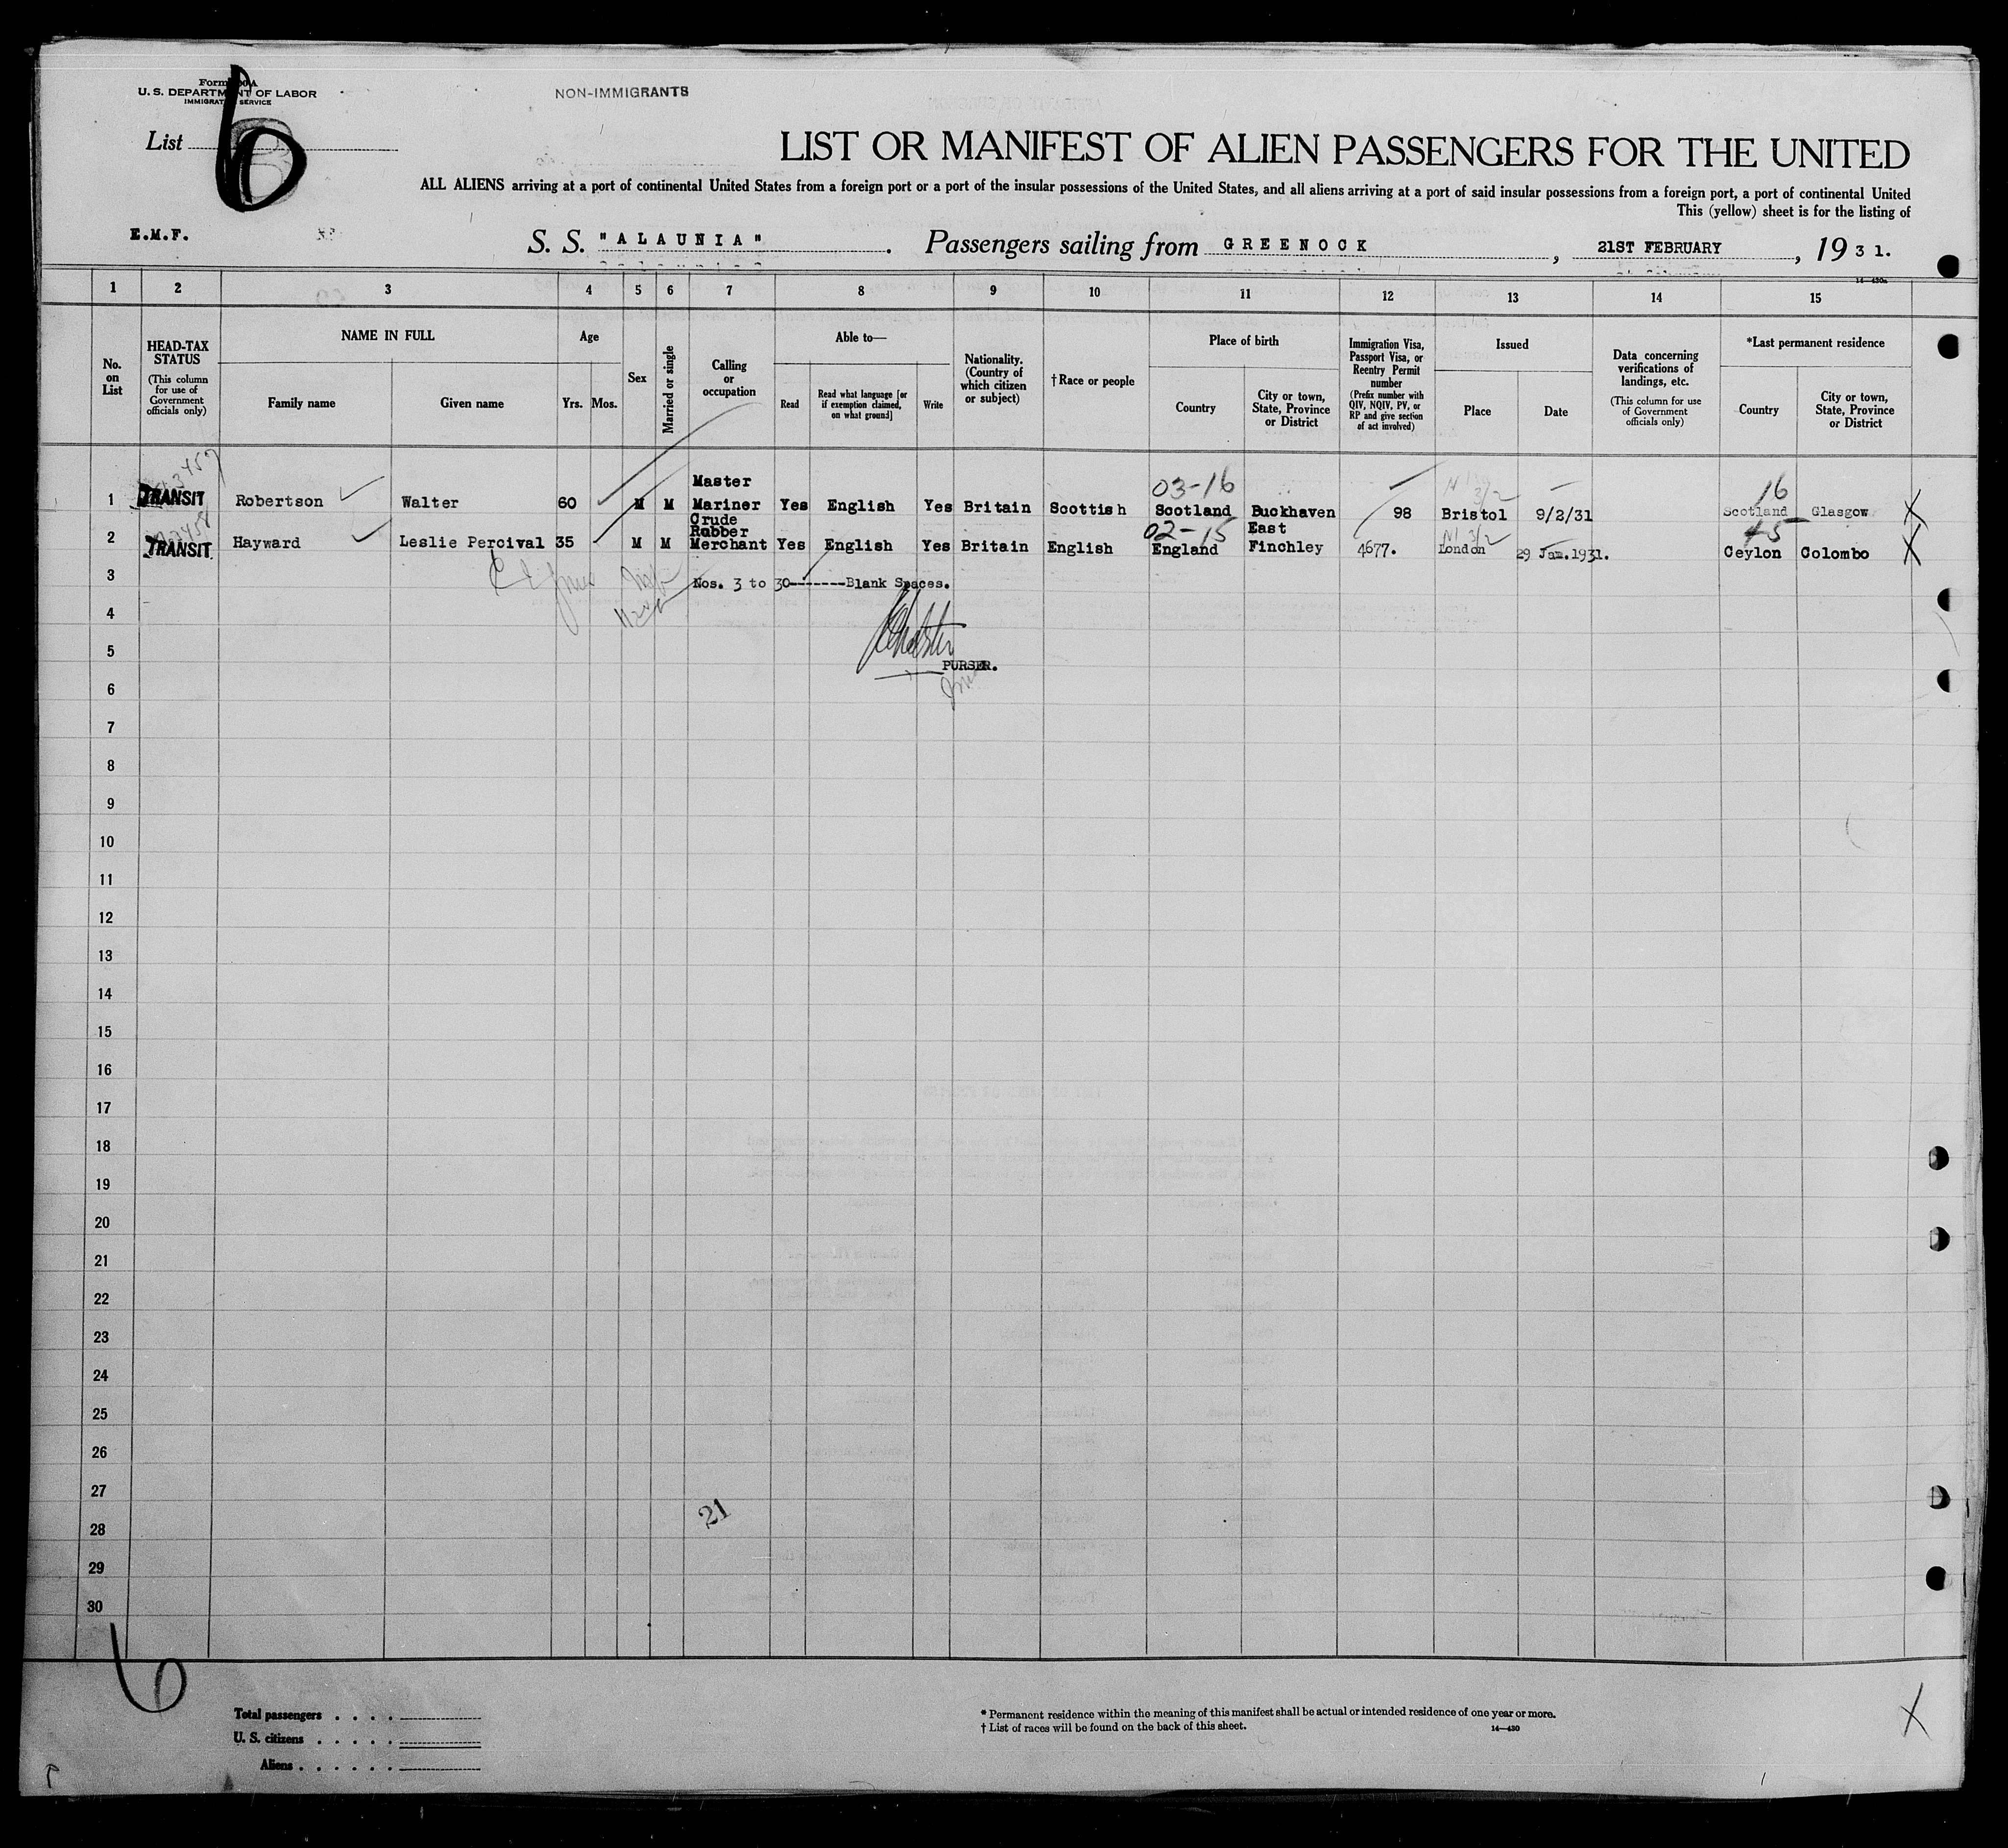 Form 500A
U. S. DEPARTMENT OF LABOR
IMMIGRATION SERVICE
NON-IMMIGRANTS
List 6
LIST OR MANIFEST OF ALIEN PASSENGERS FOR THE UNITED
ALL ALIENS arriving at a port of continental United States from a foreign port or a port of the insular possessions of the United States, and all aliens arriving at a port of said insular possessions from a foreign port, a port of continental United
This (yellow) sheet is for the listing of
E.M.F. S. S. "ALAUNIA" . Passengers sailing from GREENOCK , 21ST FEBRUARY , 19 31.
14—430a
1 2 3 4 5 6 7 8 9 10 11 12 13 14 15
No. on List
HEAD-TAX STATUS (This column for use of Government officials only)
NAME IN FULL
Family name Given name
Age
Yrs. Mos.
Sex
Married or single
Calling or occupation
Able to—
Read
Read what language [or if exemption claimed, on what ground]
Write
Nationality. (Country of which citizen or subject)
†Race or people
Place of birth
Country
City or town, State, Province or District
Immigration Visa, Passport Visa, or Reentry Permit number (Prefix number with QIV, NQIV, PV, or RP and give section of act involved)
Issued
Place Date
Data concerning verifications of landings, etc. (This column for use of Government officials only)
*Last permanent residence
Country
City or town, State, Province or District
03-16 16
1 TRANSIT Robertson Walter 60 M M Master Mariner Yes English Yes Britain Scottish Scotland Buckhaven 98 Bristol 9/2/31 Scotland Glasgow X
02-15
2 TRANSIT Hayward Leslie Percival 35 M M Crude Rubber Merchant Yes English Yes Britain English England East Finchley 4677. London 29 Jan.1931. Ceylon Colombo X
3 Nos. 3 to 30-------Blank Spaces.
4
5
PURSER.
6
7
8
9
10
11
12
13
14
15
16
17
18
19
20
21
22
23
24
25
26
27
21
28
29
30
6
Total passengers . . . .
U. S. citizens . . . . .
Aliens . . . . . .
* Permanent residence within the meaning of this manifest shall be actual or intended residence of one year or more.
† List of races will be found on the back of this sheet. 14—430
X